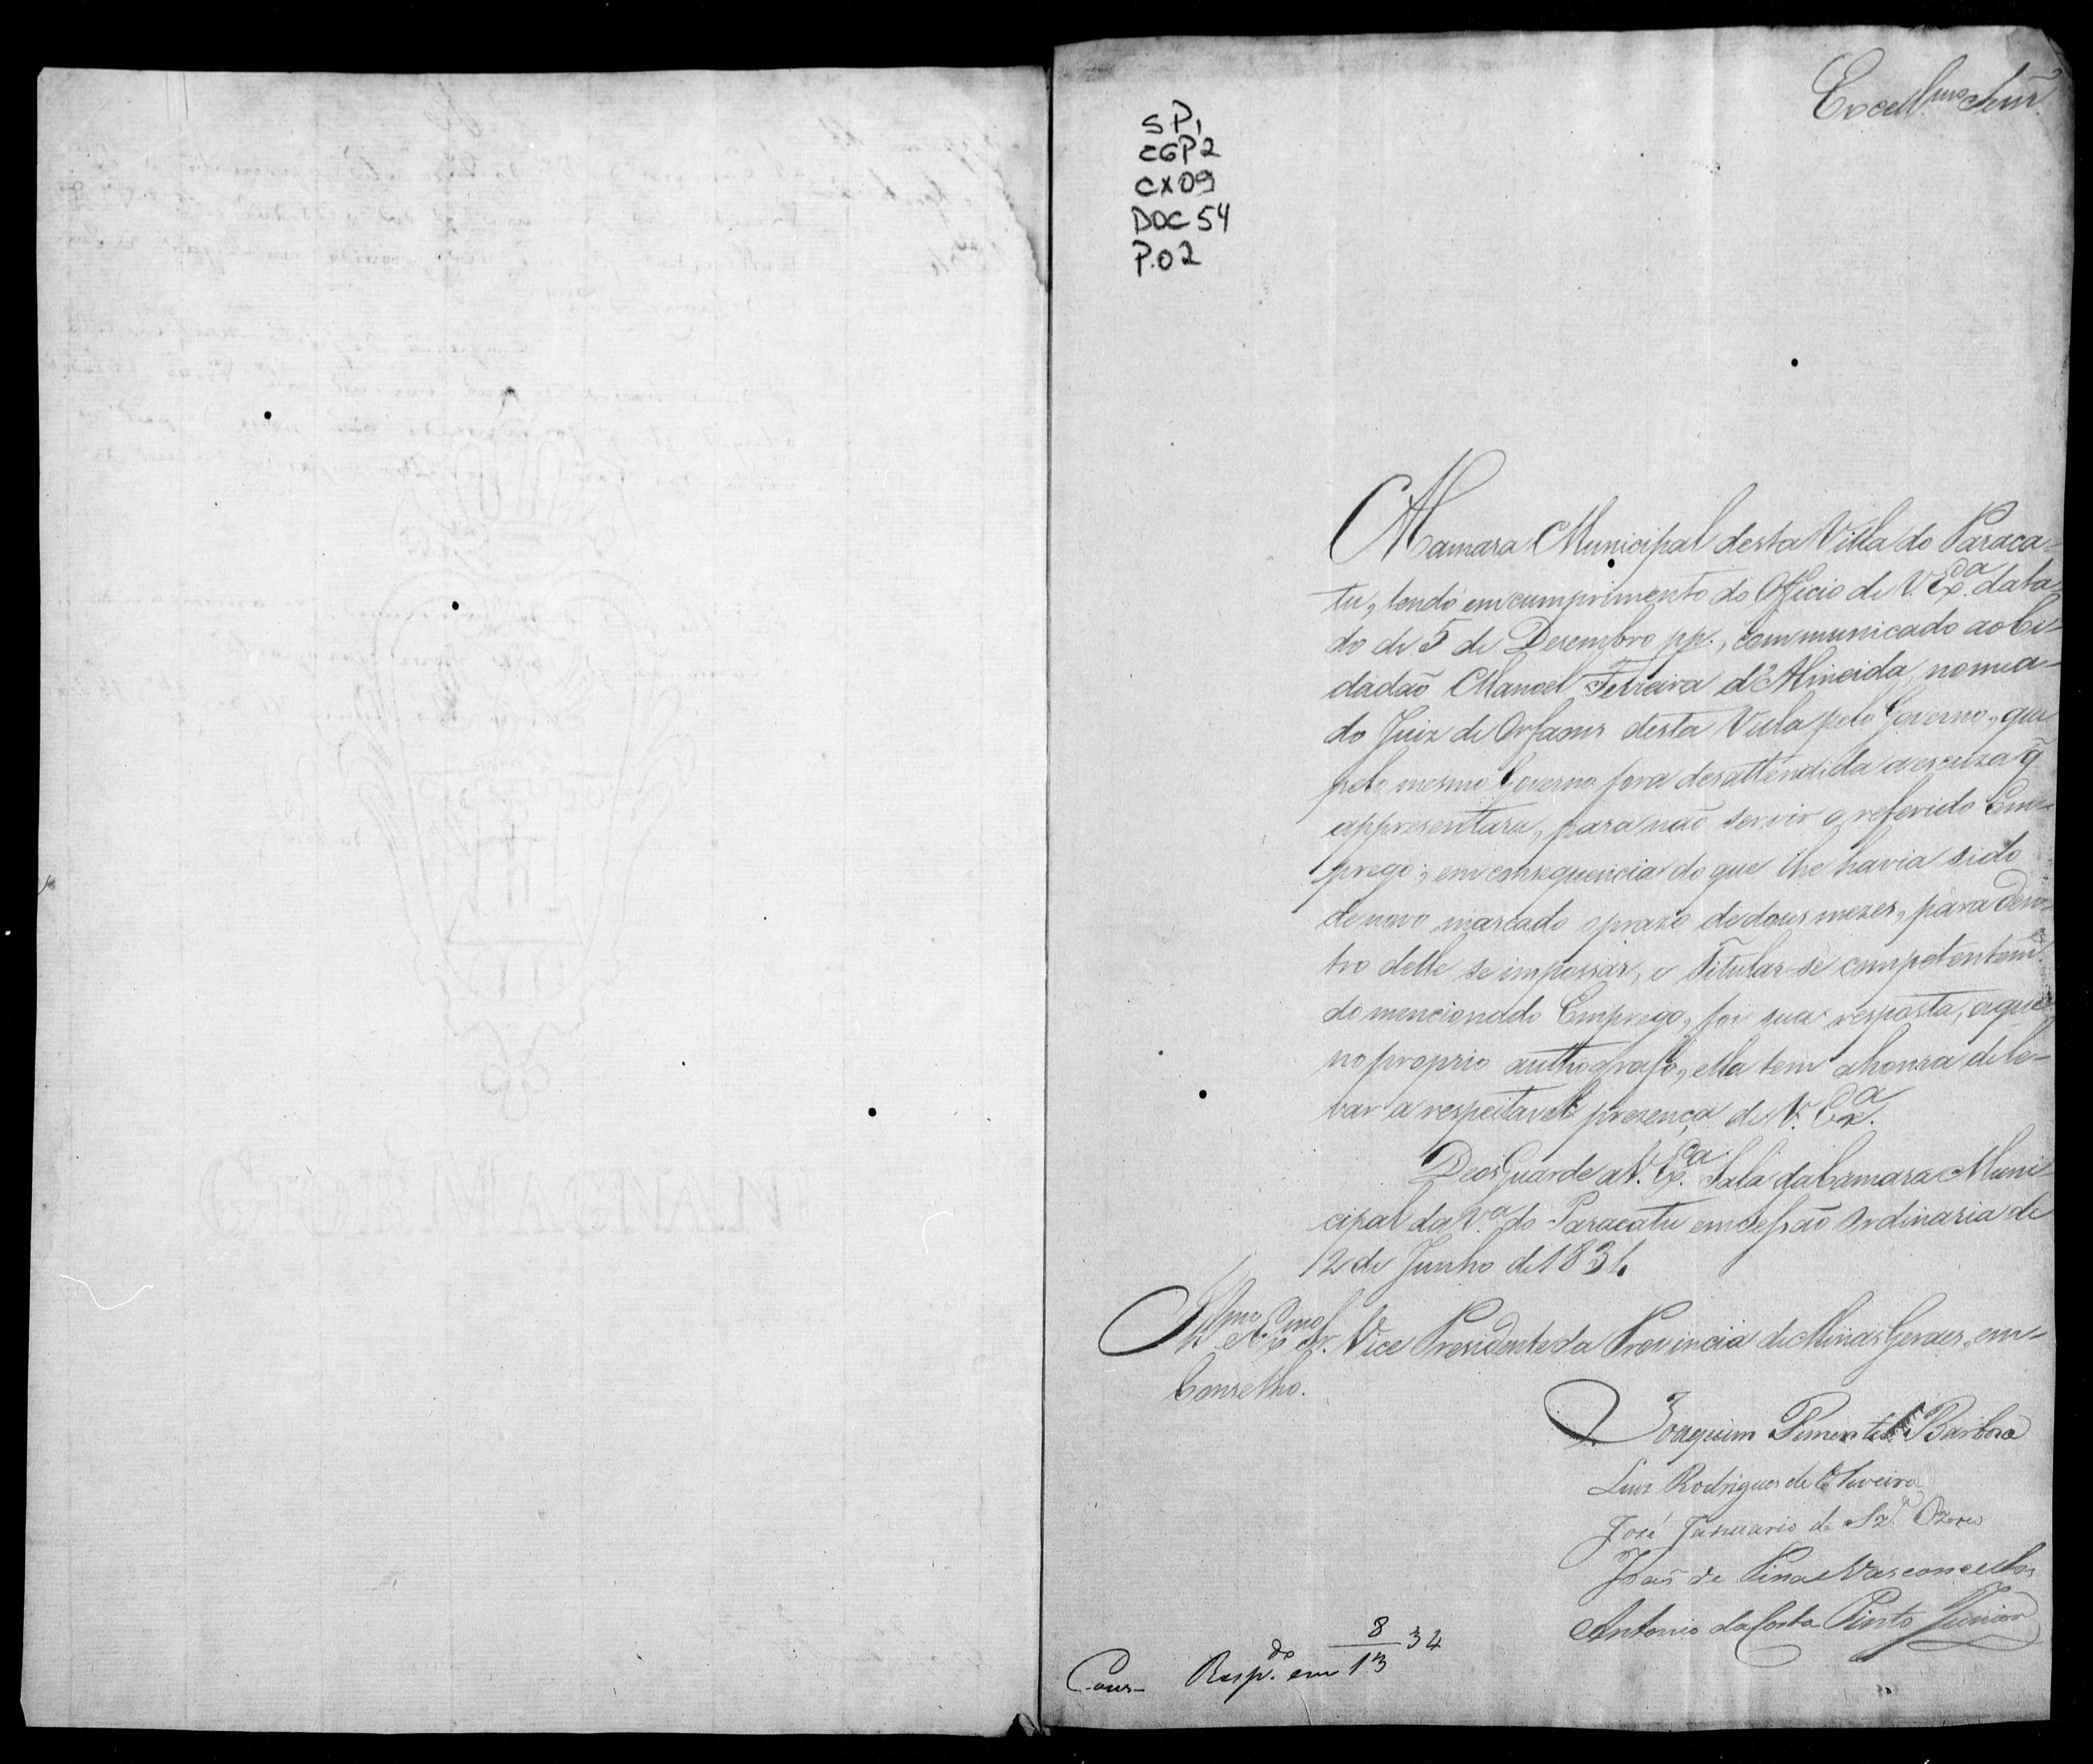 SP1
CGP2
CX09
DOC 54
P.02
Excell.mo Senr.
A Camara Municipal desta Villa do Paraca-
tu, tendo em cumprimento do Officio de V. Ex.ca data-
do de 5 de Desembro pp., communicado ao Ci-
dadão Manoel Ferreira d'Almeida, nomea-
do Juiz de Orfaons desta Villa pelo Governo, que
pelo mesmo Governo fora desattendida a escuza q̃
appresentara, para não servir o referido Em-
prego; em consequencia do que lhe havia sido
de novo marcado o prazo de dous mezes, para den-
tro delle se impossar, e Titular-se competentem.e
do mencionado Emprego, foi sua resposta, a que
no proprio authografo, ella tem a honra de le-
var a respeitavel prezença de V. Ex.a
Deos Guarde a V. Ex.ca Sala da Camara Muni-
cipal da V.a do Paracatu em Sessão Ordinaria de
12 de Junho de 1834
Ill.mo e Ex.mo Sr. Vice Presidente da Provincia de Minas Geraes, em
Conselho.
Joaquim Pimentel Barbosa
Luiz Rodrigues de Oliveira
José Januario de Sz.a
João de Pina Vasconcellos
Antonio da Costa Pinto Junior
Resp.do em 13/8 34